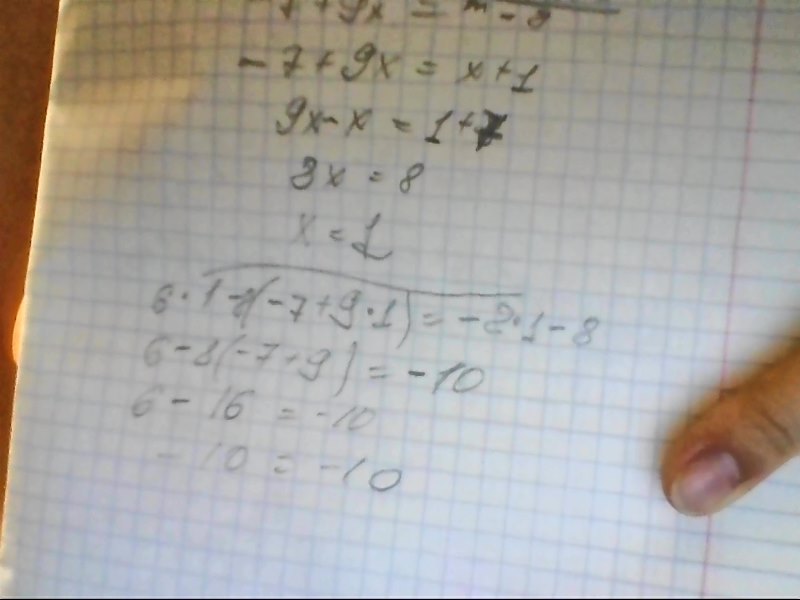 -7+9x =
-7+9x = x+1
9x-x = 1+7
8x = 8
x = 1
6·1-8(-7+9·1) = -2·1-8
6-8(-7+9) = -10
6-16 = -10
-10 = -10